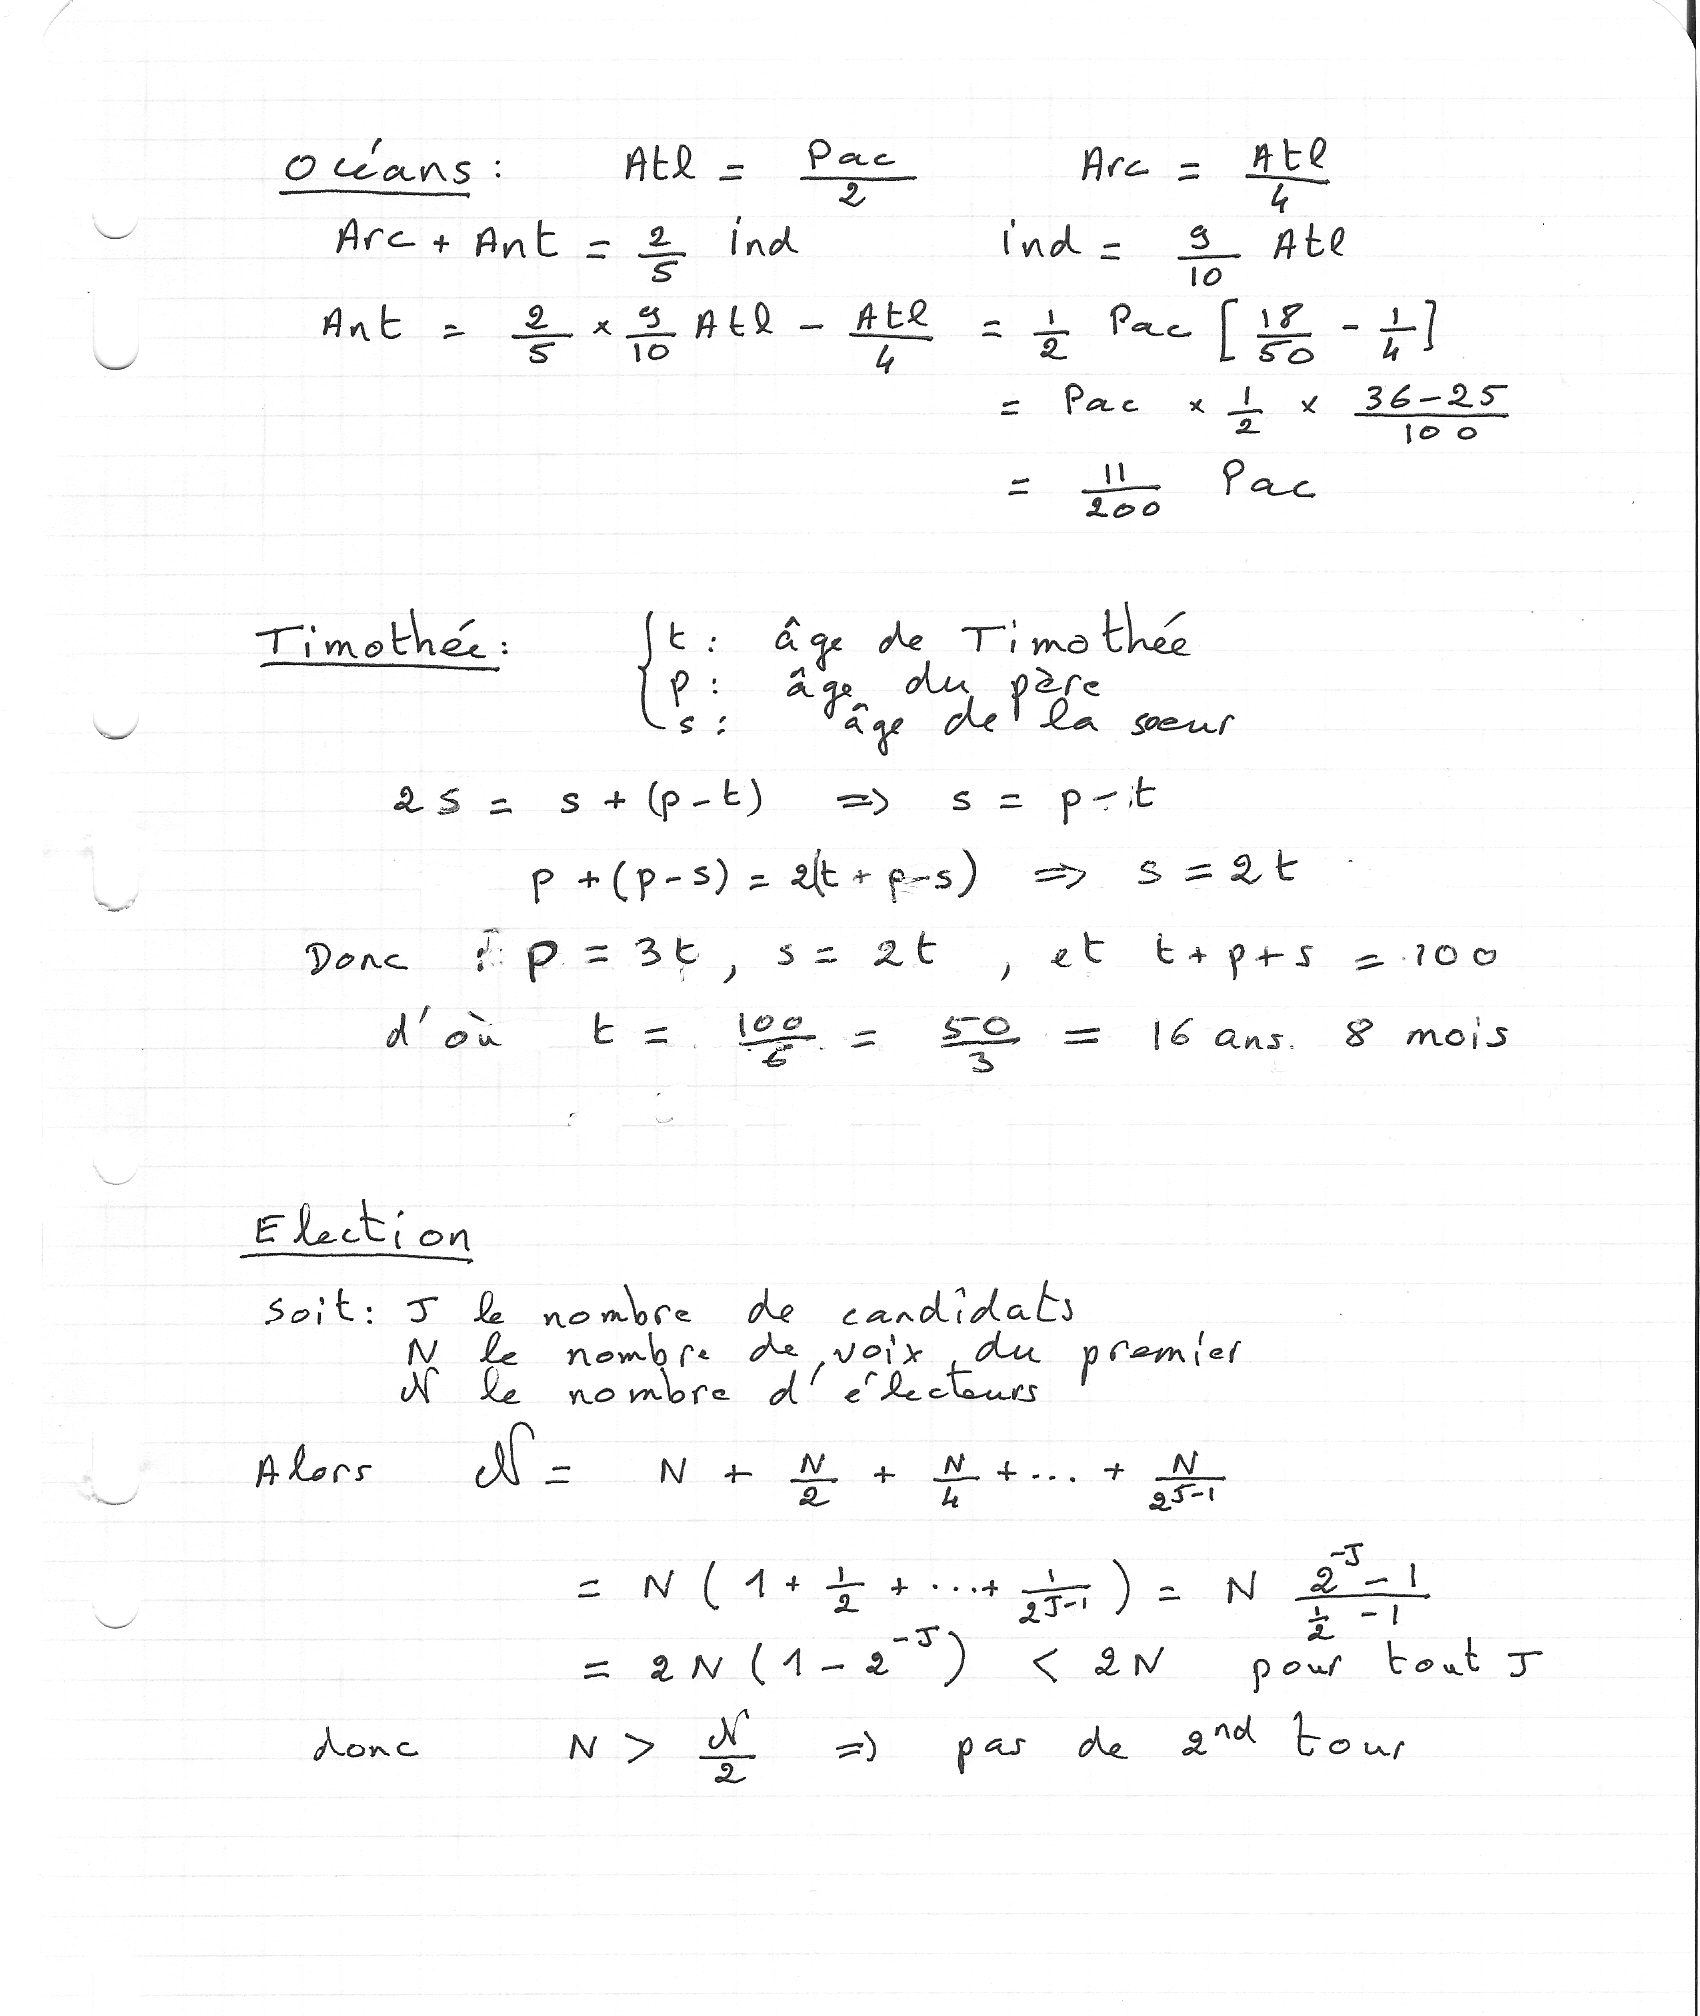 Océans : Atl = Pac/2 Arc = Atl/4
Arc + Ant = 2/5 ind ind = 9/10 Atl
Ant = 2/5 × 9/10 Atl - Atl/4 = 1/2 Pac [18/50 - 1/4]
= Pac × 1/2 × (36-25)/100
= 11/200 Pac
Timothée : { t : âge de Timothée
p : âge du père
s : âge de la soeur
2s = s + (p-t) => s = p-t
p + (p-s) = 2(t + p-s) => s = 2t
Donc : p = 3t, s = 2t, et t+p+s = 100
d'où t = 100/6 = 50/3 = 16 ans. 8 mois
Election
soit : J le nombre de candidats
N le nombre de voix du premier
𝒩 le nombre d'électeurs
Alors 𝒩 = N + N/2 + N/4 + ... + N/2^(J-1)
= N (1 + 1/2 + ... + 1/2^(J-1)) = N (2^(-J) - 1)/(1/2 - 1)
= 2N (1 - 2^(-J)) < 2N pour tout J
donc N > 𝒩/2 => pas de 2nd tour